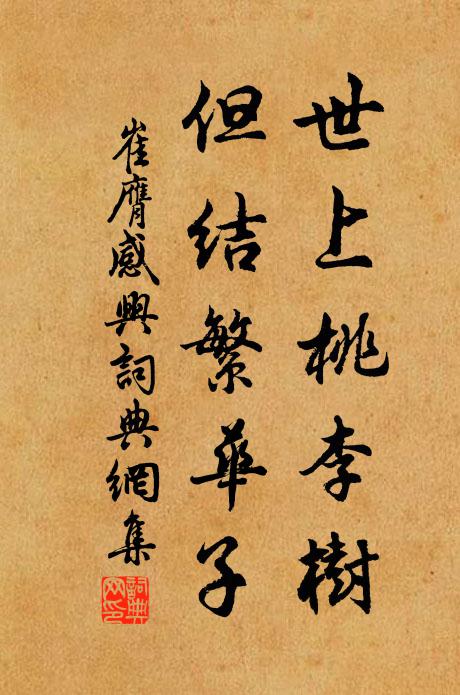 世上桃李樹
但結繁華子
崔膺感興詞典網集
詞典网印